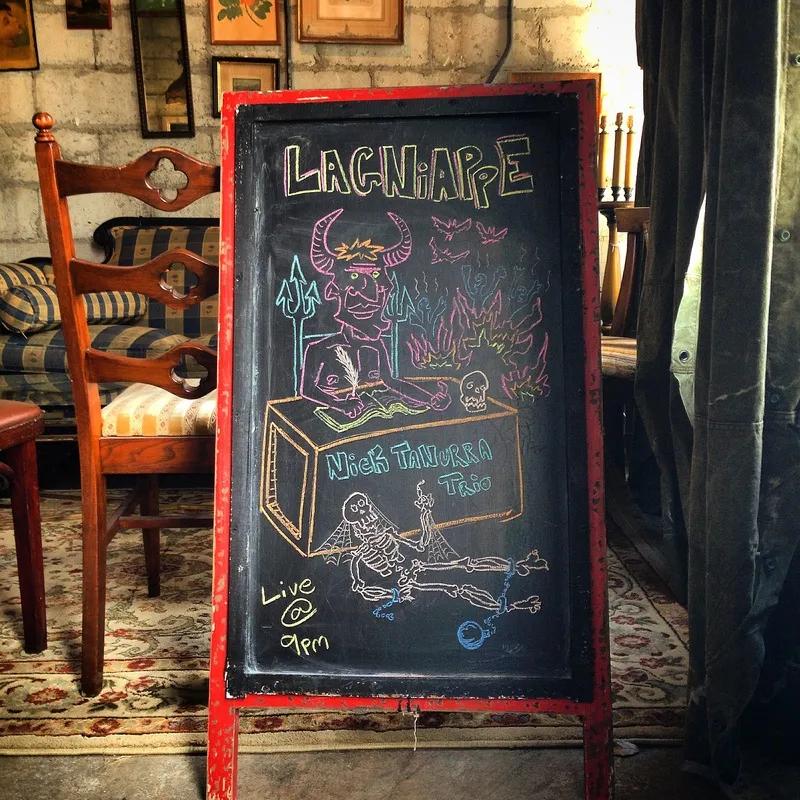 LAGNiAPPE
NiCK TANURRA
TRiO
Live
@
9pm